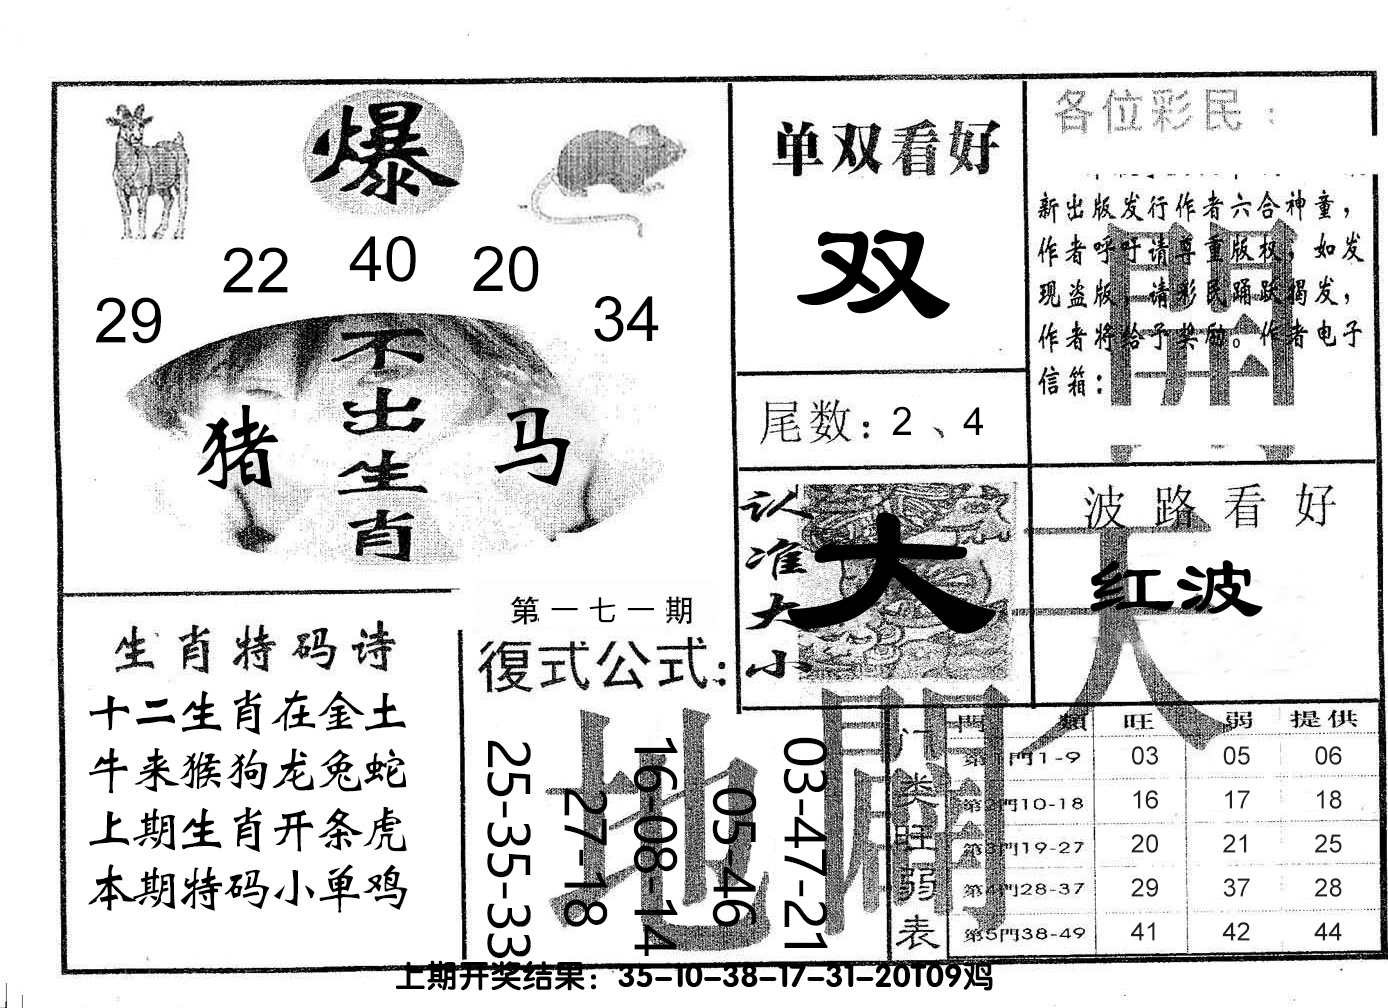 爆
22 40 20
29 34
不出生肖
猪 马
生肖特码诗
十二生肖在金土
牛来猴狗龙兔蛇
上期生肖开条虎
本期特码小单鸡
第一七一期
復式公式:
25-35-33
27-18
16-08-14
05-46
03-47-21
单双看好
双
尾数: 2、4
认准大小
大
各位彩民:
新出版发行作者六合神童，
作者呼吁请尊重版权，如发
现盗版，请彩民踊跃揭发，
作者将给予奖励。作者电子
信箱:
波路看好
红波
天
開
地
門类旺弱表
門 類 旺 弱 提供
第1門1-9 03 05 06
第2門10-18 16 17 18
第3門19-27 20 21 25
第4門28-37 29 37 28
第5門38-49 41 42 44
上期开奖结果：35-10-38-17-31-20T09鸡